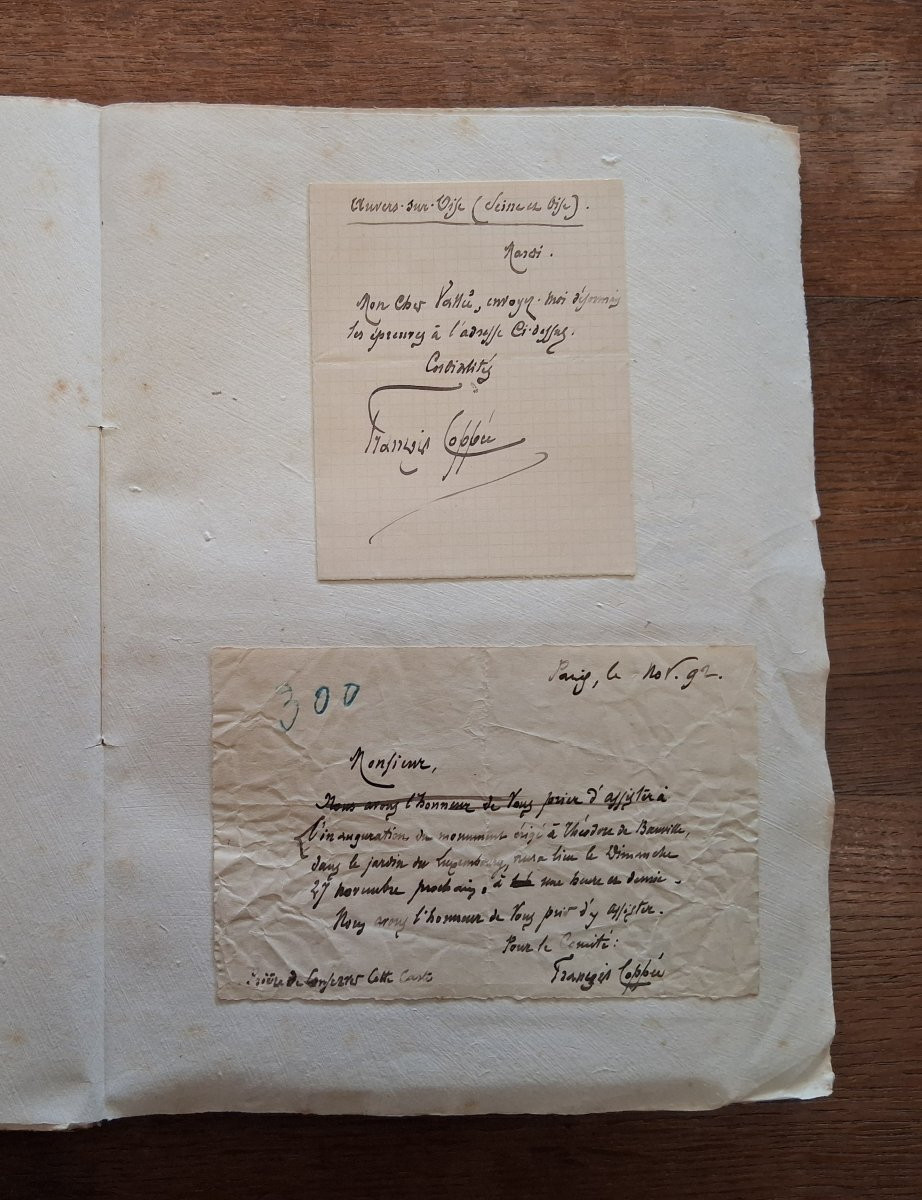 Auvers-sur-Oise (Seine et Oise).
Mardi.
Mon cher Vallé, envoyez-moi désormais
les épreuves à l'adresse ci-dessus.
Cordialités
François Coppée
300
Paris, le Nov. 92.
Monsieur,
Nous avons l'honneur de vous prier d'assister à
L'inauguration du monument érigé à Théodore de Banville,
dans le jardin du Luxembourg, aura lieu le Dimanche
27 novembre prochain, à une heure et demie.
Nous avons l'honneur de vous prier d'y assister.
Pour le Comité:
François Coppée
Prière de conserver cette carte